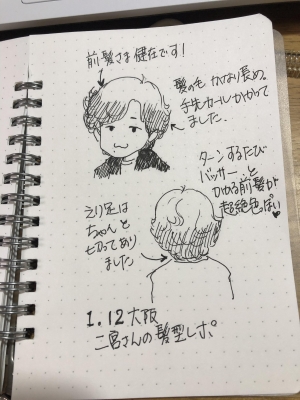 前髪さま健在です!
髪の毛 かなり長め。
毛先カールかかって
ました.
ターンするたび
バッサー、と
かかる前髪が
超絶色っぽい♥
えり足は
ちゃんと
切ってあり
ました
1.12大阪
二宮さんの髪型レポ